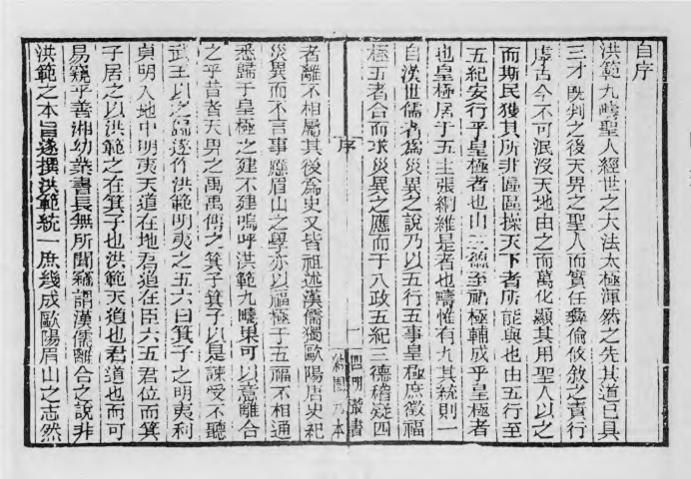 自序
洪範九疇聖人經世之大法太極渾然之先其道已具
三才既判之後天畀之聖人而實任彝倫攸敘之責行
虖古今不可泯沒天地由之而萬化顯其用聖人以之
而斯民獲其所非區區操天下者所能與也由五行至
五紀安行乎皇極者也由三德至福極輔成乎皇極者
也皇極居于五主張綱維是者也疇惟有九其統則一
自漢世儒者爲災異之說乃以五行五事皇極庶徵福
極五者合而求災異之應而于八政五紀三德稽疑四
序
一
四明叢書
約園刊本
者離不相屬其後爲史又皆祖述漢儒獨歐陽唐史紀
災異而不言事應眉山之學亦以福極于五福不相通
悉歸于皇極之建不建嗚呼洪範九疇果可以意離合
之乎昔者天畀之禹禹傳之箕子箕子以是諫受不聽
武王以之遂作洪範明夷之五六曰箕子之明夷利
貞明入地中明夷天道在地爲道在臣六五君位而箕
子居之以洪範之在箕子也洪範天道也君道也而可
易窺乎善湘幼業書長無所聞竊謂漢儒離合之說非
洪範之本旨遂撰洪範統一庶幾成歐陽眉山之志然